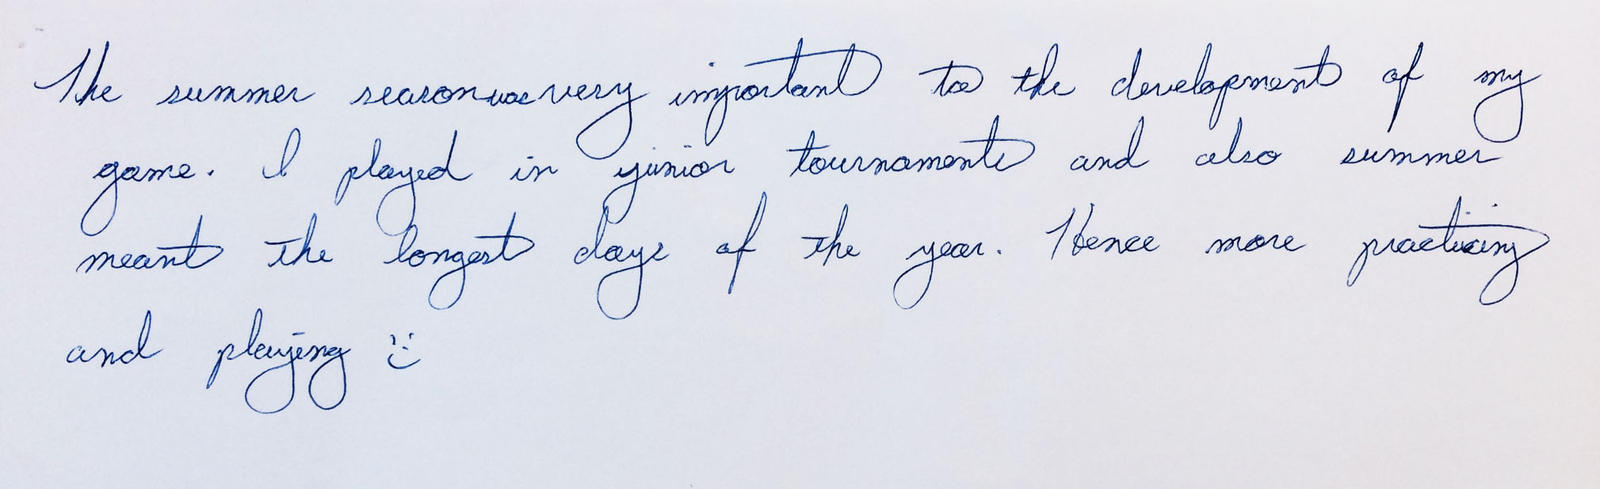 The summer season was very important to the development of my
game. I played in junior tournaments and also summer
meant the longest days of the year. Hence more practicing
and playing :)